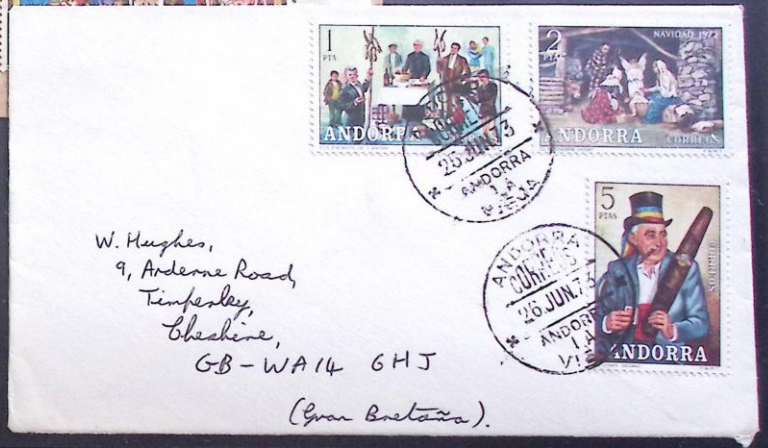 1
PTA
ANDORRA
2
PTAS
NAVIDAD 1972
ANDORRA
CORREOS
CORREOS
26.JUN.73
ANDORRA
LA
VIEJA
5
PTAS
CORREOS
ANDORRA
ANDORRA
CORREOS
26.JUN.73
ANDORRA
LA
VIEJA
W. Hughes,
9, Arderne Road,
Timperley,
Cheshire,
GB-WA14 6HJ
(Gran Bretaña).